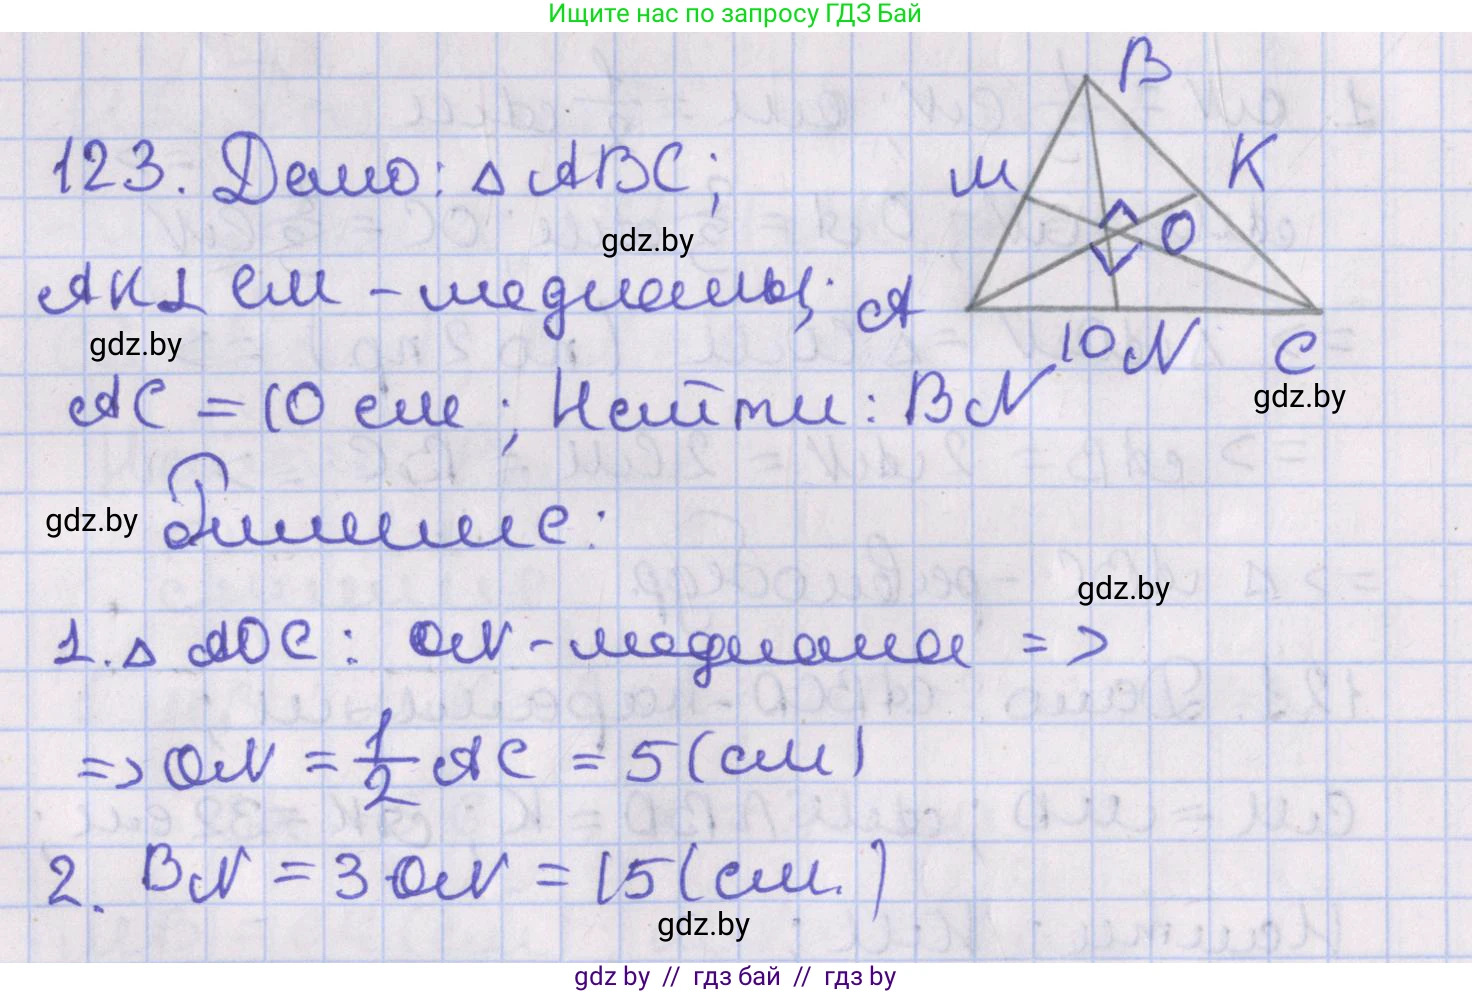 Ищите нас по запросу ГДЗ Бай
B
123. Дано: △ ABC;
M
K
O
gdz.by
AK ⊥ CM - медианы;
A
gdz.by
10 N
C
AC = 10 см; Найти: BN
gdz.by
gdz.by
Решение:
gdz.by
1. △ AOC: ON - медиана =>
=> ON = 1/2 AC = 5 (см)
2. BN = 3 ON = 15 (см.)
gdz.by
gdz by // гдз бай // гдз by